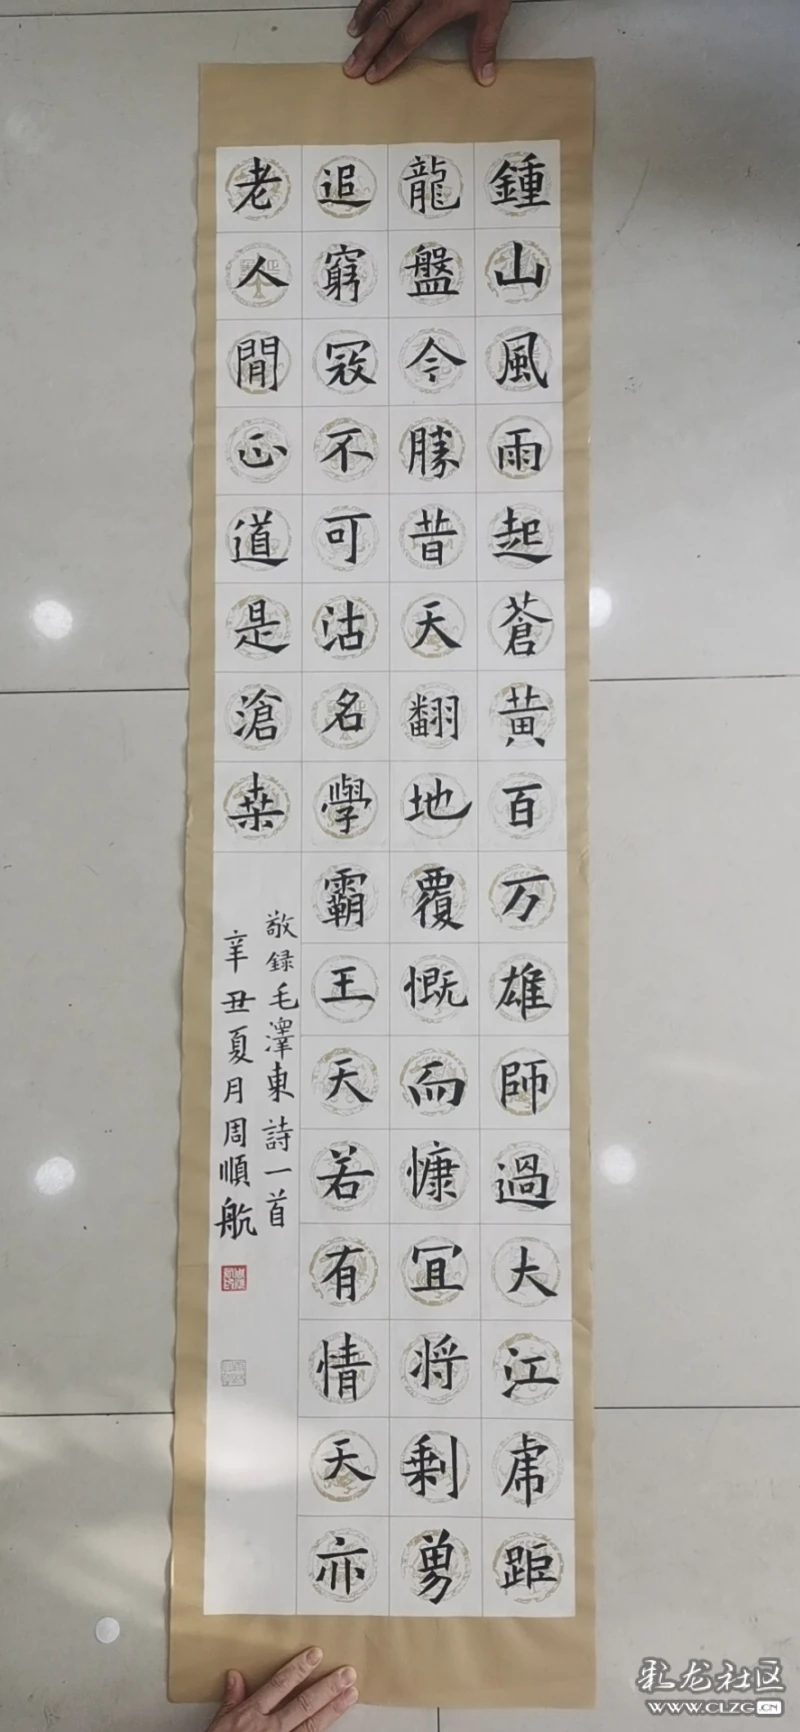 鍾山風雨起蒼黃百万雄師過大江虎距
龍盤今勝昔天翻地覆慨而慷宜将剩勇
追窮寇不可沽名學霸王天若有情天亦
老人間正道是滄桒
敬録毛澤東詩一首
辛丑夏月周順航
彩龙社区
WWW.CLZG.CN